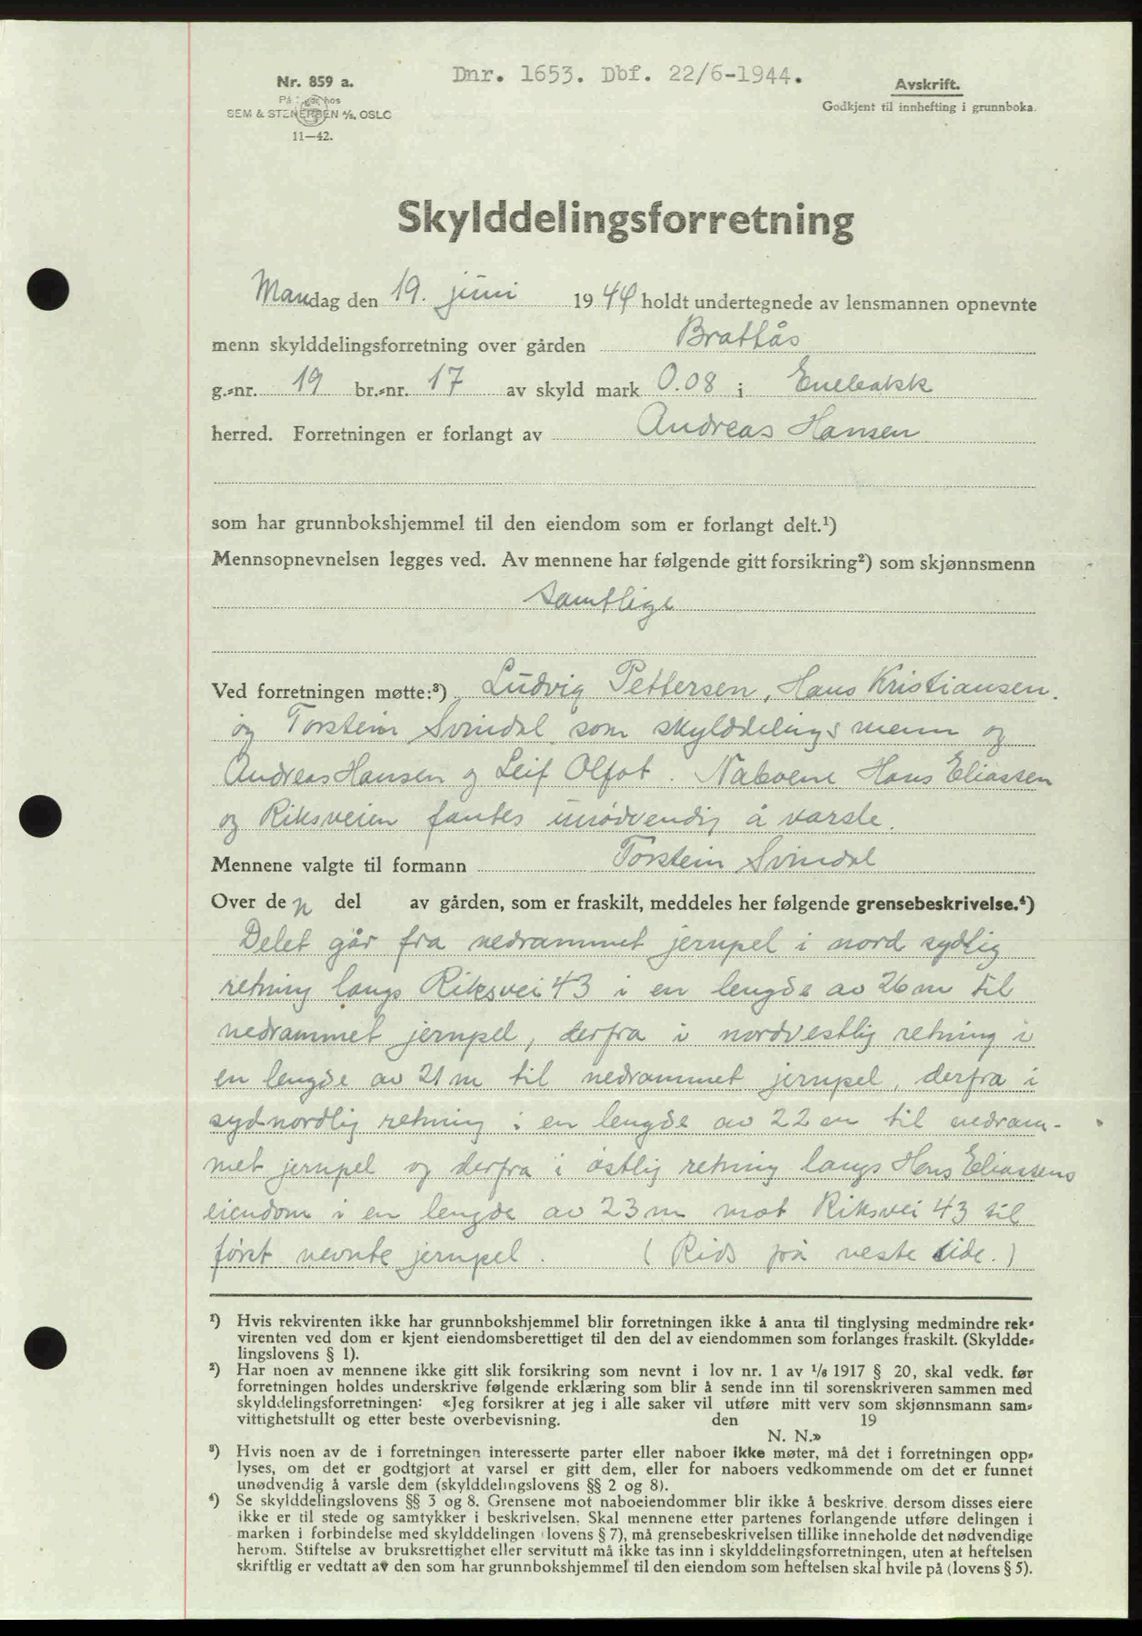 Dnr. 1653. Dbf. 22/6-1944.
Nr. 859 a.
SEM & STENERSEN A/S, OSLO
11—42.
Avskrift.
Godkjent til innhefting i grunnboka.
Skylddelingsforretning
Mandag den 19. juni 1944 holdt undertegnede av lensmannen opnevnte
menn skylddelingsforretning over gården Brattås
g.-nr. 19 br.-nr. 17 av skyld mark 0.08 i Enebakk
herred. Forretningen er forlangt av Andreas Hansen
som har grunnbokshjemmel til den eiendom som er forlangt delt.¹)
Mennsopnevnelsen legges ved. Av mennene har følgende gitt forsikring²) som skjønnsmenn
samtlige
Ved forretningen møtte:³) Ludvig Pettersen, Hans Kristiansen
og Torstein Svindal som skylddelingsmenn og
Andreas Hansen og Leif Olfot. Naboene Hans Eliassen
og Riksveien fantes unødvendig å varsle.
Mennene valgte til formann Torstein Svindal
Over den del av gården, som er fraskilt, meddeles her følgende grensebeskrivelse.⁴)
Delet går fra nedrammet jernpel i nord sydlig
retning langs Riksvei 43 i en lengde av 26 m til
nedrammet jernpel, derfra i nordvestlig retning i
en lengde av 21 m til nedrammet jernpel, derfra i
sydnordlig retning i en lengde av 22 m til nedram-
met jernpel og derfra i østlig retning langs Hans Eliassens
eiendom i en lengde av 23 m mot Riksvei 43 til
først nevnte jernpel. (Rids på neste side.)
¹) Hvis rekvirenten ikke har grunnbokshjemmel blir forretningen ikke å anta til tinglysing medmindre rek-
virenten ved dom er kjent eiendomsberettiget til den del av eiendommen som forlanges fraskilt. (Skyldde-
lingslovens § 1).
²) Har noen av mennene ikke gitt slik forsikring som nevnt i lov nr. 1 av 1/6 1917 § 20, skal vedk. før
forretningen holdes underskrive følgende erklæring som blir å sende inn til sorenskriveren sammen med
skylddelingsforretningen: «Jeg forsikrer at jeg i alle saker vil utføre mitt verv som skjønnsmann sam-
vittighetsfullt og etter beste overbevisning. den 19
N. N.»
³) Hvis noen av de i forretningen interesserte parter eller naboer ikke møter, må det i forretningen opp-
lyses, om det er godtgjort at varsel er gitt dem, eller for naboers vedkommende om det er funnet
unødvendig å varsle dem (skylddelingslovens §§ 2 og 8).
⁴) Se skylddelingslovens §§ 3 og 8. Grensene mot naboeiendommer blir ikke å beskrive, dersom disses eiere
ikke er til stede og samtykker i beskrivelsen. Skal mennene etter partenes forlangende utføre delingen i
marken i forbindelse med skylddelingen (lovens § 7), må grensebeskrivelsen tillike inneholde det nødvendige
herom. Stiftelse av bruksrettighet eller servitutt må ikke tas inn i skylddelingsforretningen, uten at heftelsen
skriftlig er vedtatt av den som har grunnbokshjemmel til den eiendom som heftelsen skal hvile på (lovens § 5).